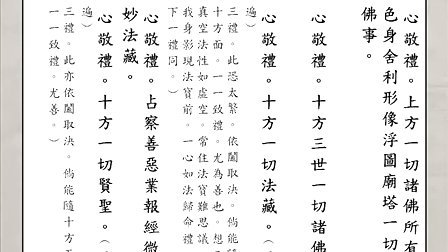 心敬禮。上方一切諸佛所有
色身舍利形像浮圖廟塔一切
佛事。
心敬禮。十方三世一切諸佛
心敬禮。十方一切法藏。（
三禮。此恐太繁。依閣取決。倘能隨
十方面。一一致禮。尤為善也。想
真空法性如虛空。常住法寶難思議
我身影現法寶前。一心如法歸命禮
下一禮同。）
心敬禮。占察善惡業報經微
妙法藏。
遍）
心敬禮。十方一切賢聖。（
三禮。此亦依閣取決。倘能隨十方
一一致禮。尤善。）
遍）